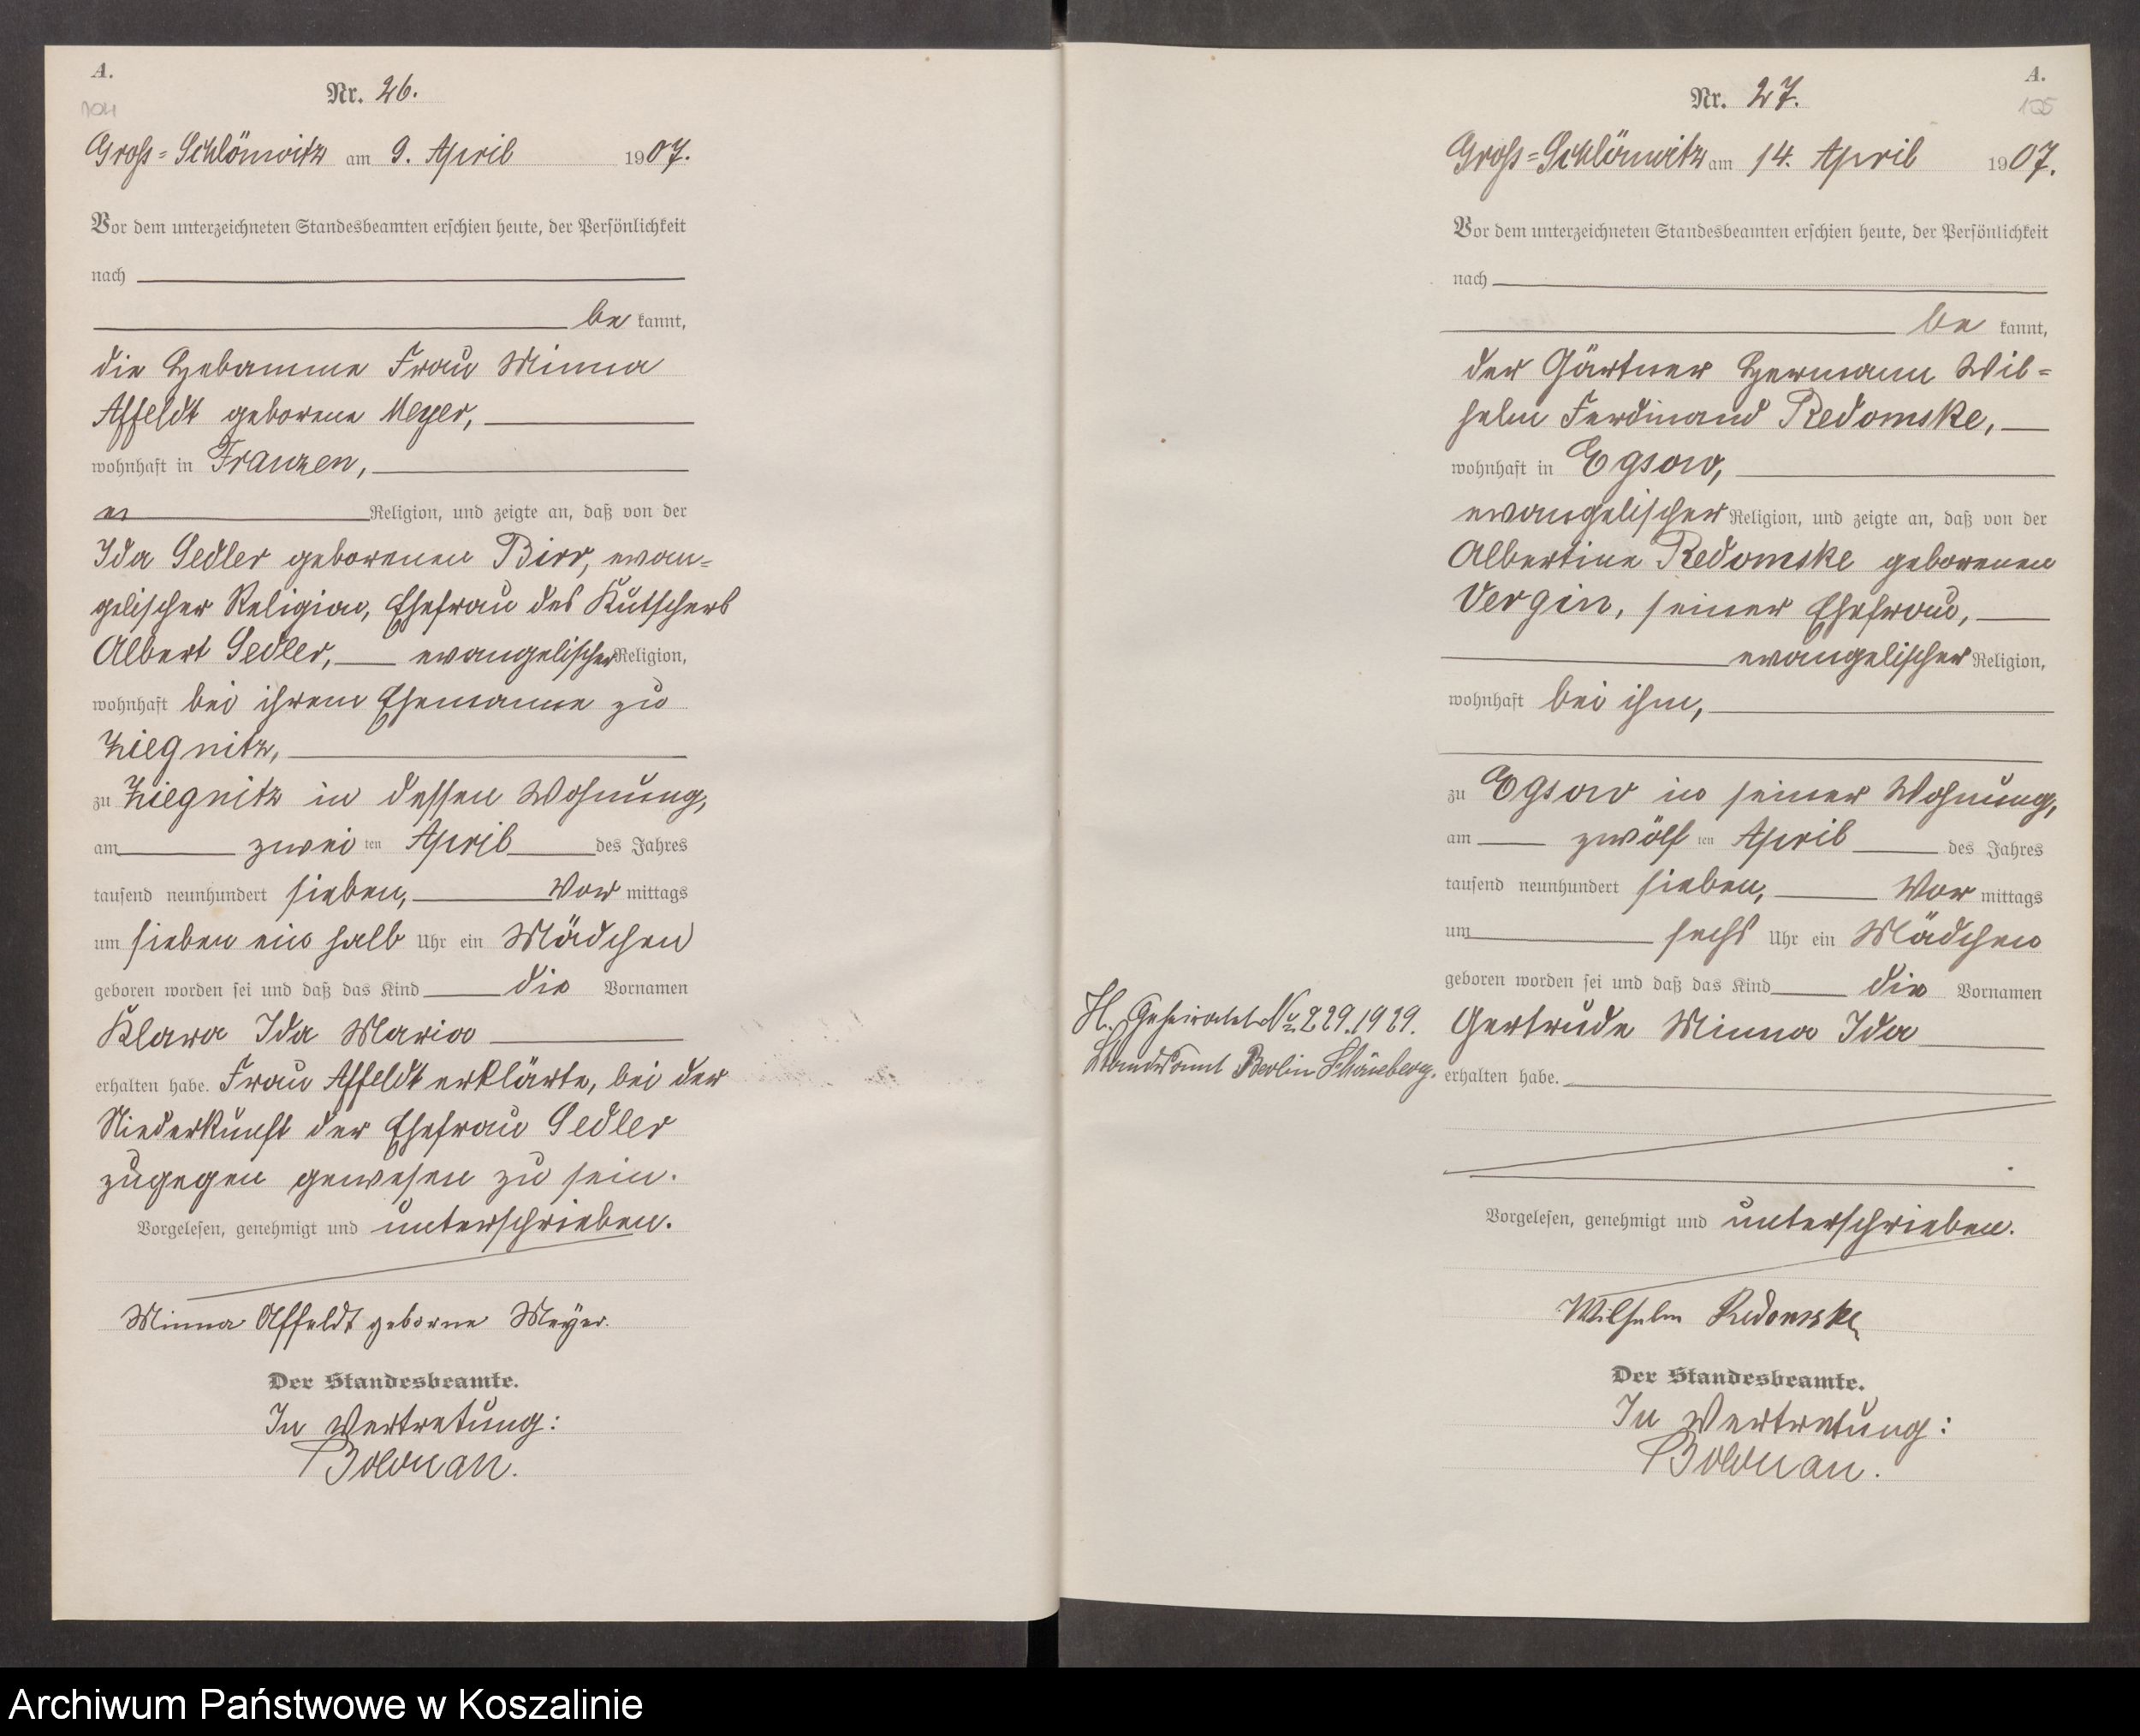 A.
104
Nr. 26.
Groß-Schlönwitz am 9. April 1907.
Vor dem unterzeichneten Standesbeamten erschien heute, der Persönlichkeit
nach
be kannt,
die Hebamme Frau Minna
Affeldt geborene Meyer,
wohnhaft in Franzen,
Religion, und zeigte an, daß von der
Ida Sedler geborenen Birr, evan-
gelischer Religion, Ehefrau des Kutschers
Albert Sedler, evangelischer Religion,
wohnhaft bei ihrem Ehemanne zu
Ziegnitz,
zu Ziegnitz in dessen Wohnung,
am zwei ten April des Jahres
tausend neunhundert sieben, Vor mittags
um sieben ein halb Uhr ein Mädchen
geboren worden sei und daß das Kind die Vornamen
Klara Ida Maria
erhalten habe. Frau Affeldt erklärte, bei der
Niederkunft der Ehefrau Sedler
zugegen gewesen zu sein.
Vorgelesen, genehmigt und unterschrieben.
Minna Affeldt geborne Meyer.
Der Standesbeamte.
In Vertretung:
A.
105
Nr. 27.
Groß-Schlönwitz am 14. April 1907.
Vor dem unterzeichneten Standesbeamten erschien heute, der Persönlichkeit
nach
be kannt,
der Gärtner Hermann Wil-
helm Ferdinand Redomske,
wohnhaft in Egsow,
evangelischer Religion, und zeigte an, daß von der
Albertine Redomske geborenen
Vergin, seiner Ehefrau,
evangelischer Religion,
wohnhaft bei ihm,
zu Egsow in seiner Wohnung,
am zwölf ten April des Jahres
tausend neunhundert sieben, Vor mittags
um sechs Uhr ein Mädchen
geboren worden sei und daß das Kind die Vornamen
Gertrude Minna Ida
erhalten habe.
H. Geheiratet Nr. 229.1929.
Standesamt Berlin Schöneberg.
Vorgelesen, genehmigt und unterschrieben.
Wilhelm Redomske
Der Standesbeamte.
In Vertretung:
Archiwum Państwowe w Koszalinie